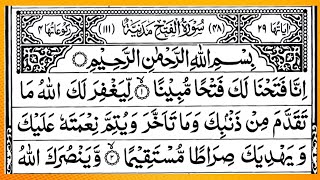 اٰیَاتُهَا ٢٩ (٤٨) سُوْرَةُ الْفَتْحِ مَدَنِیَّةٌ (١١١) رُکُوْعَاتُهَا ٤
بِسْمِ اللّٰهِ الرَّحْمٰنِ الرَّحِیْمِ
اِنَّا فَتَحْنَا لَكَ فَتْحًا مُّبِیْنًا ۙ۝١ لِّیَغْفِرَ لَكَ اللّٰهُ مَا
تَقَدَّمَ مِنْ ذَنْۢبِكَ وَمَا تَاَخَّرَ وَیُتِمَّ نِعْمَتَهٗ عَلَیْكَ
وَیَهْدِیَكَ صِرَاطًا مُّسْتَقِیْمًا ۙ۝٢ وَّیَنْصُرَكَ اللّٰهُ